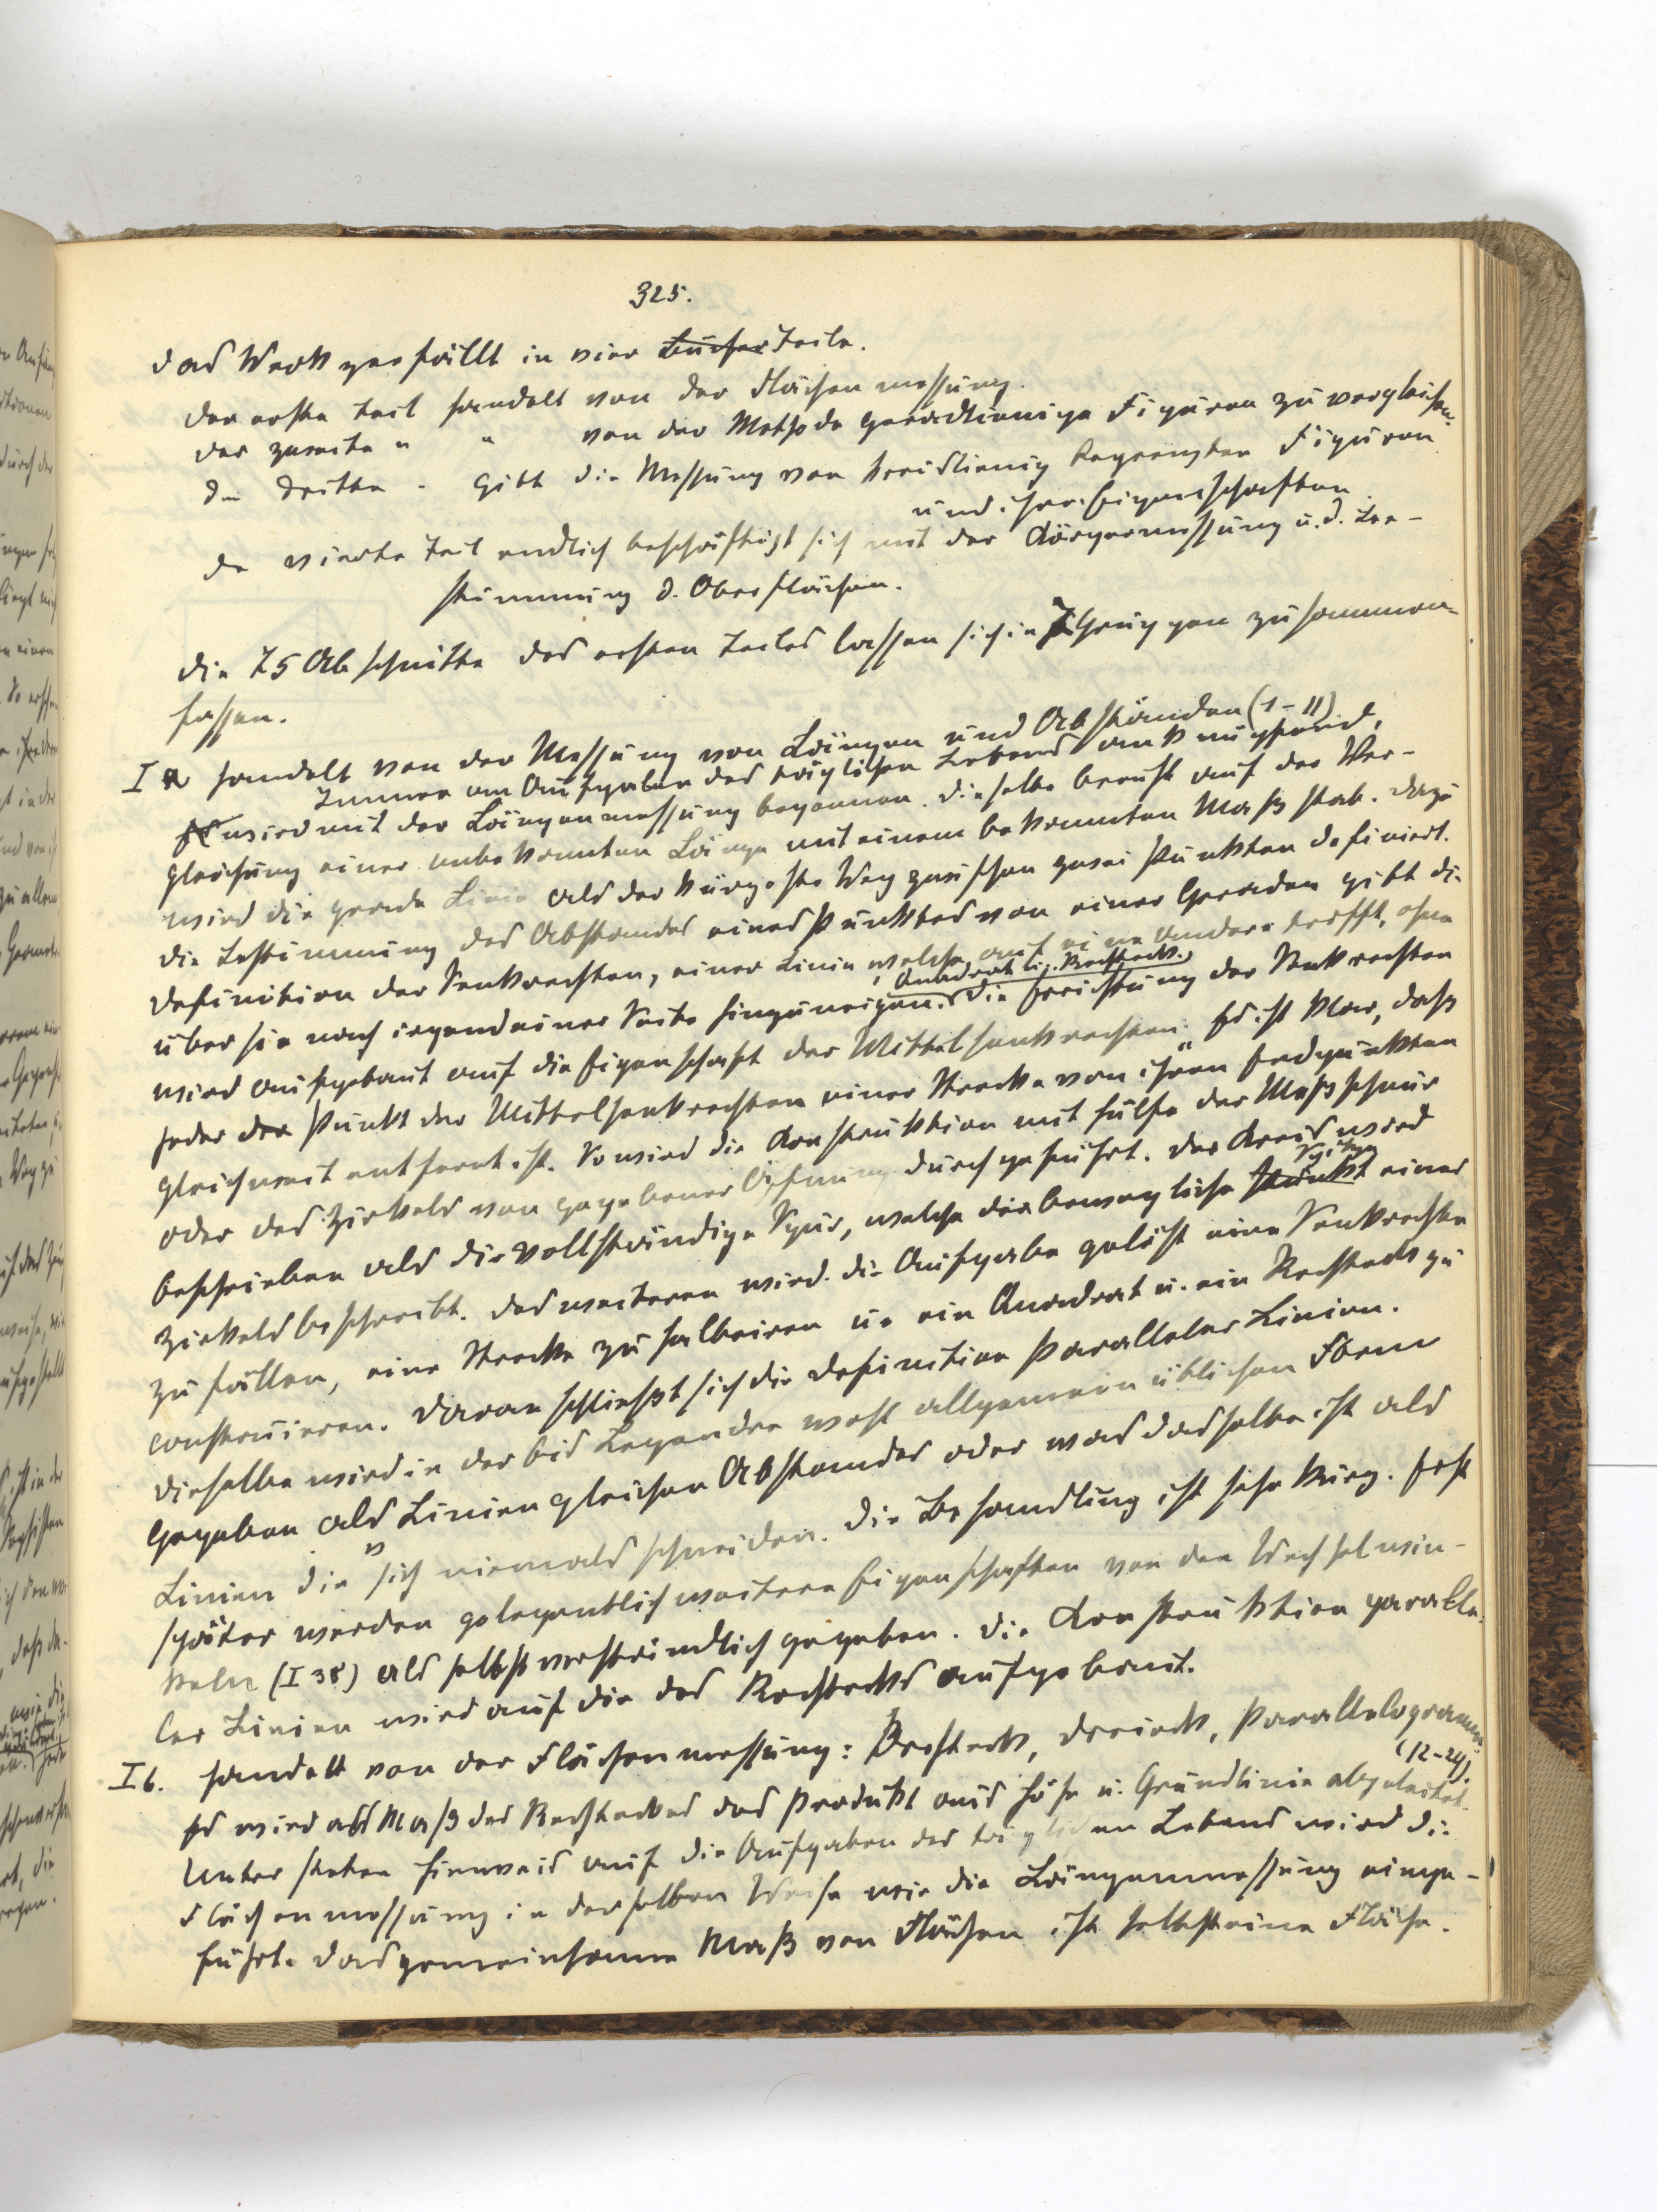 325.
Das Werk zerfällt in vier Bücher Teile.
Der erste Teil handelt von der Flächenmessung.
Der zweite " " von der Methode geradlinige Figuren zu vergleichen.
Die dritte " gibt die Messung von kreislinig begrenzten Figuren
und ihrer Eigenschaften.
De vierte Teil endlich beschäftigt sich mit der Körpermessung u. d. Be-
stimmung d. Oberflächen.
Die 75 Abschnitte des ersten Teiles lassen sich in 7 Gruppen zusammen-
fassen.
I a handelt von der Messung von Längen und Abständen (1-11)
Immer an Aufgaben des täglichen Lebens anknüpfend,
Es wird mit der Längenmessung begonnen. Dieselbe beruht auf der Ver-
gleichung einer unbekannten Länge mit einem bekannten Maßstab. Dazu
wird die gerade Linie als der kürzeste Weg zwischen zwei Punkten definiert.
Die Bestimmung des Abstandes eines Punktes von einer Geraden gibt die
Definition der Senkrechten, einer Linie, welche auf eine Andere trifft, ohne
Quadrat u. Rechteck.
über sie nach irgendeiner Seite hinzuneigen. Die Errichtung der Senkrechten
wird aufgebaut auf die Eigenschaft der Mittelsenkrechten: Es ist klar, daß
jeder der Punkt der Mittelsenkrechten einer Strecke von ihren Endpunkten
gleichweit entfernt ist. So wird die Konstruktion mit Hülfe der Meßschnur
oder des Zirkels von gegebener Öffnung durchgeführt. Der Kreis wird
Spitze
beschrieben als die vollständige Spur, welche die bewegliche Punkt eines
Zirkels beschreibt. Des weiteren wird die Aufgabe gelöst eine Senkrechte
zu fällen, eine Strecke zu halbieren u. ein Quadrat u. ein Rechteck zu
construieren. Daran schließt sich die Definition Paralleler Linien.
Dieselbe wird in der bis Legendre wohl allgemein üblichen Form
Gegeben als Linien gleichen Abstandes oder was dasselbe ist als
Linien die sich niemals schneiden. Die Behandlung ist sehr kurz. Erst
später werden gelegentlich weitere Eigenschaften von den Wechselwin-
keln (I 38) als selbstverständlich gegeben. Die Konstruktion paralle-
ler Linien wird auf die des Rechtecks aufgebaut.
I b. handelt von der Flächenmessung: Rechteck, Dreieck, Parallelogramm.
(12-24).
Es wird als Maß des Rechteckes das Produkt aus Höhe u. Grundlinie abgeleitet.
Unter stetem Hinweis auf die Aufgaben des täglichen Lebens wird die
Flächenmessung in derselben Weise wie die Längenmessung einge-
führt. Das gemeinsame Maß von Flächen ist selbst eine Fläche.